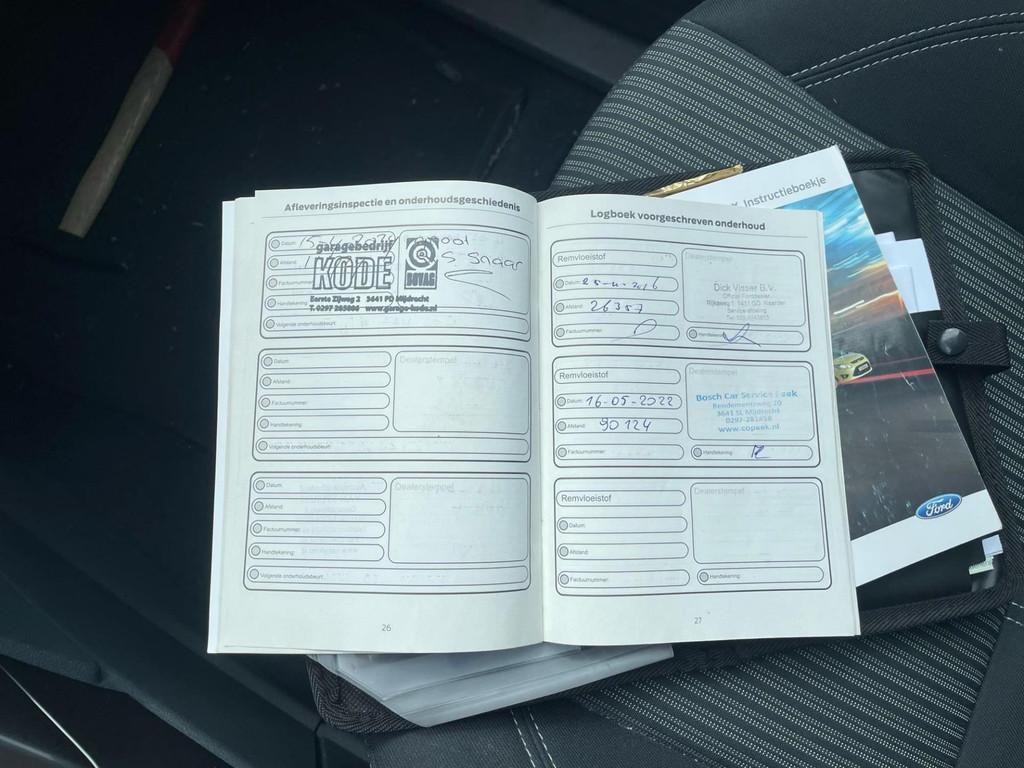 Afleveringsinspectie en onderhoudsgeschiedenis
Datum:
Afstand:
Factuurnummer:
Handtekening:
Volgende onderhoudsbeurt:
garagebedrijf
KODE
BOVAG
Eerste Zijweg 2 3641 PD Mijdrecht
T. 0297 285806 www.garage-kode.nl
Datum:
Dealerstempel
Afstand:
Factuurnummer:
Handtekening:
Volgende onderhoudsbeurt:
Datum:
Dealerstempel
Afstand:
Factuurnummer:
Handtekening:
Volgende onderhoudsbeurt:
26
Logboek voorgeschreven onderhoud
Remvloeistof
Dealerstempel
Datum:
Afstand: 26357
Factuurnummer:
Handtekening:
Dick Visser B.V.
Official Forddealer
Rijksweg 1 1411 GD Naarden
Remvloeistof
Dealerstempel
Datum: 16-05-2022
Afstand: 90124
Factuurnummer:
Handtekening:
Bosch Car Service
Rendementsweg 20
3641 SL Mijdrecht
www.copeek.nl
Remvloeistof
Dealerstempel
Datum:
Afstand:
Factuurnummer:
Handtekening:
27
Instructieboekje
Ford